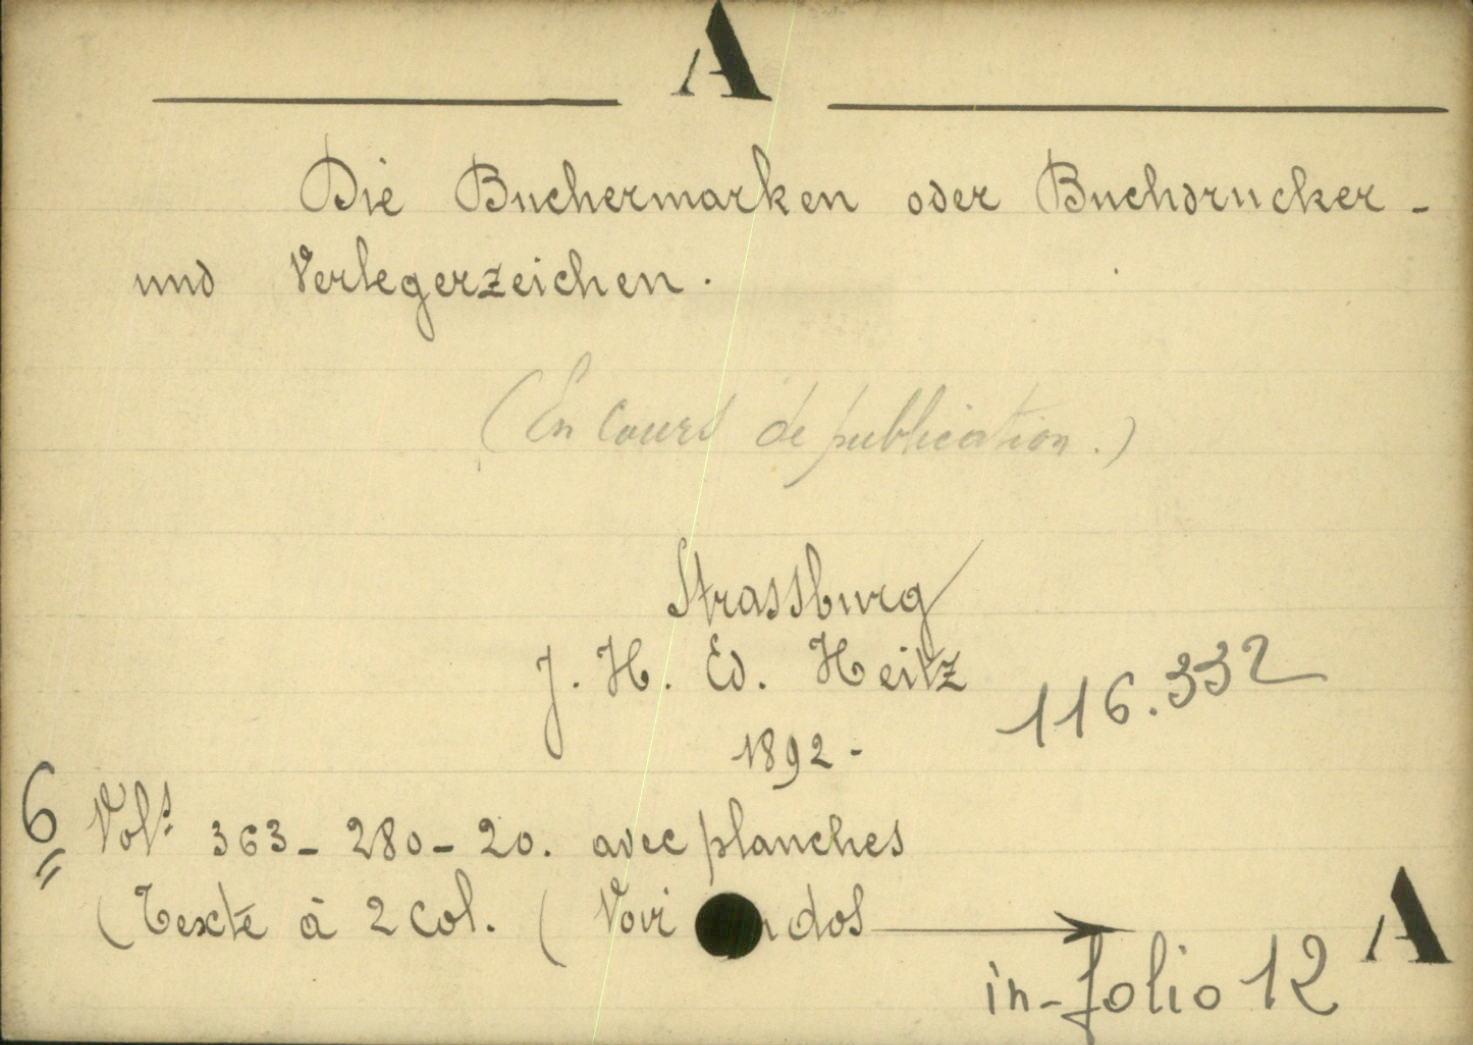 A
Die Buchermarken oder Buchdrucker -
und Verlegerzeichen.
(En Cours de publication.)
Strassburg
J. H. Ed. Heitz
1892 -
116.332
6 Vols 363 - 280 - 20. avec planches
(Texte à 2 col. ( Voir dos
A
in-folio 12